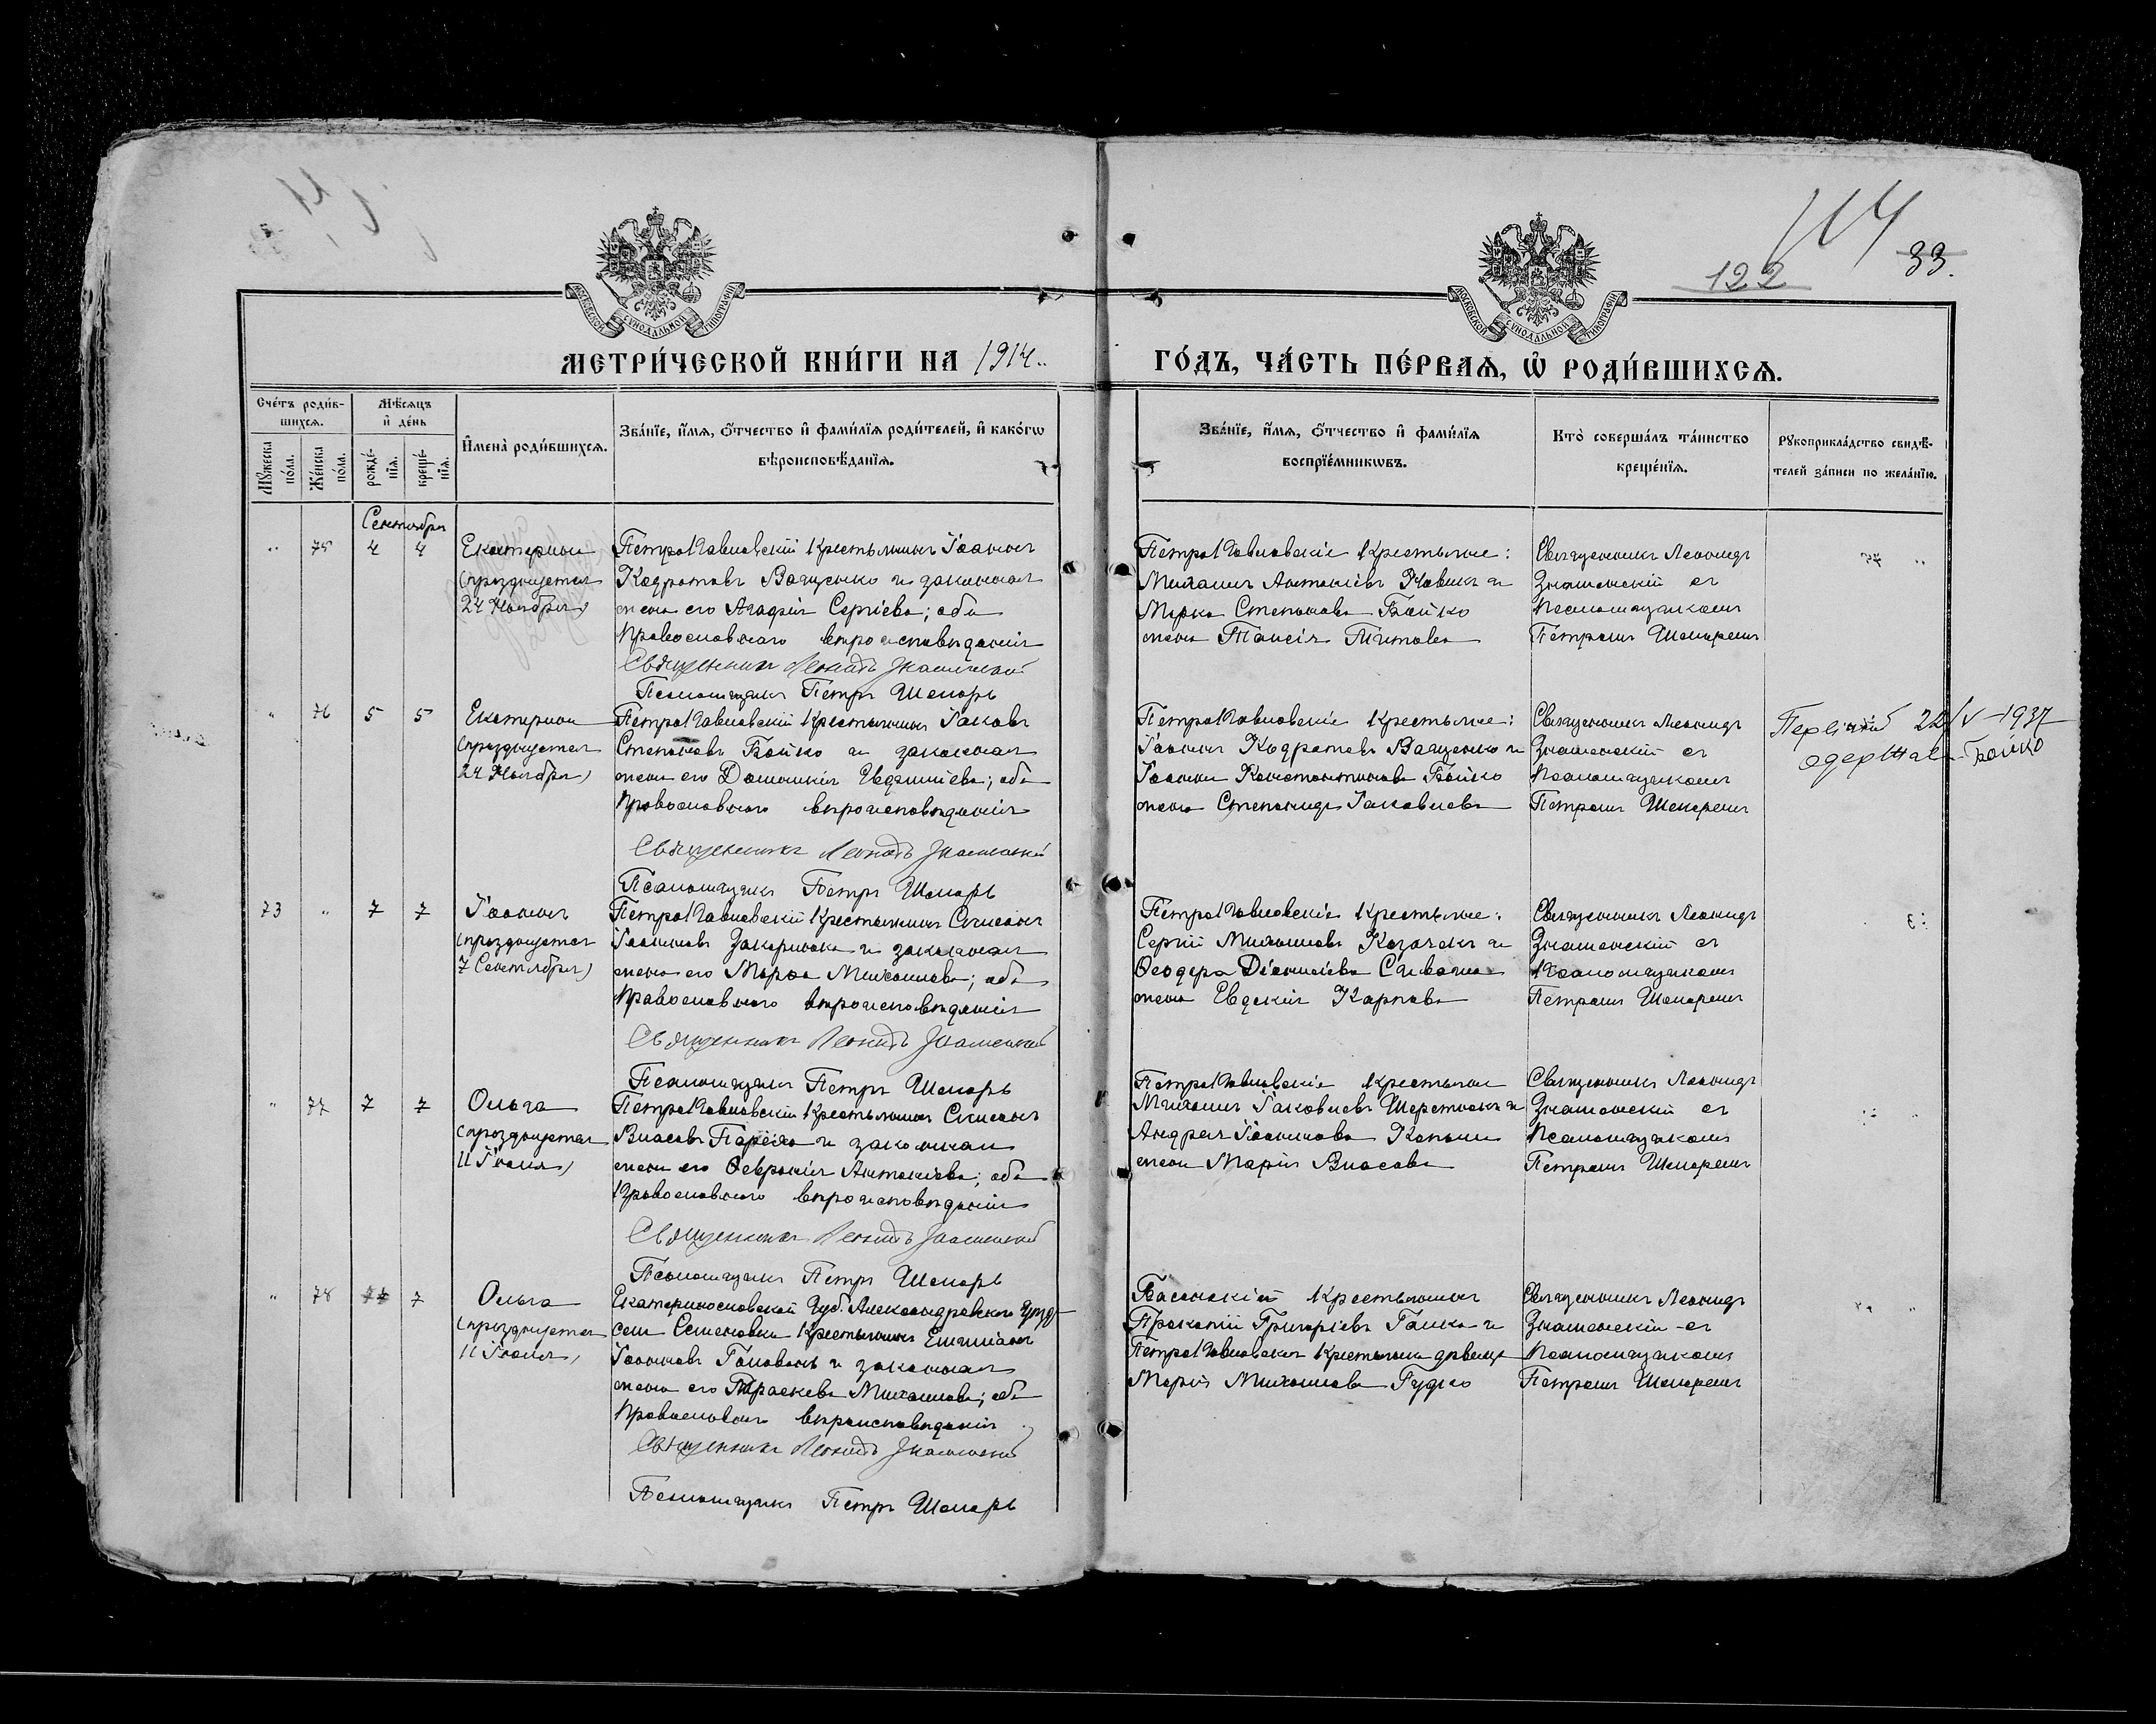 114
122
33.
МОСКОВСКОЙ СУНОДАЛЬНОЙ ТИПОГРАФІИ
МОСКОВСКОЙ СУНОДАЛЬНОЙ ТИПОГРАФІИ
МЕТРИ́ЧЕСКОЙ КНИ́ГИ НА 1914..
ГО́ДЪ, ЧА́СТЬ ПЕ́РВАѦ, Ѡ҆ РОДИ́ВШИХСѦ.
Сче́тъ роди́в-
шихсѧ.
Мꙋжеска по́ла.
Же́нска по́ла.
Мѣ́сѧцъ
и҆ де́нь
рожде́-
нїѧ.
креще́-
нїѧ.
И҆мена̀ роди́вшихсѧ.
Зва́нїе, и҆́мѧ, ѻ҆́тчество и҆ фами́лїѧ роди́телей, и҆ како́гѡ
вѣроисповѣ́данїѧ.
Зва́нїе, и҆́мѧ, ѻ҆́тчество и҆ фами́лїѧ
воспрїе́мникѡвъ.
Кто̀ соверша́лъ та́инство
креще́нїѧ.
Рꙋкоприкла́дство свидѣ́-
телей за́писи по жела́нїю.
Сентября
" 75 4 4
Екатерина
(празднуется
24 Ноября)
ПетроПавловскій Крестьянинъ Іоаннъ
Кодратовъ Ващенко и законная
жена его Агафія Сергіева; оба
Православнаго вѣроисповѣданія
Священникъ Леонидъ Знаменскій
Псаломщикъ Петръ Шепарь
ПетроПавловскіе Крестьяне:
Михаилъ Антоніевъ Новикъ и
Марка Степанова Бойко
жена Таисія Титова
Священникъ Леонидъ
Знаменскій съ
Псаломщикомъ
Петромъ Шепаремъ
" 76 5 5
Екатерина
(празднуется
24 Ноября)
ПетроПавловскій Крестьянинъ Іаковъ
Степановъ Бойко и законная
жена его Домникія Евфиміева; оба
Православнаго вѣроисповѣданія
Священникъ Леонидъ Знаменскій
Псаломщикъ Петръ Шепарь
ПетроПавловскіе Крестьяне:
Іоаннъ Кодратовъ Ващенко и
Іоанна Константинова Бойко
жена Степанида Іаковлева
Священникъ Леонидъ
Знаменскій съ
Псаломщикомъ
Петромъ Шепаремъ
22/V-1937
одержав Бойко
73 " 7 7
Іоаннъ
(празднуется
7 Сентября)
ПетроПавловскій Крестьянинъ Симеонъ
Іоанновъ и законная
жена его Марѳа Михаилова; оба
Православнаго вѣроисповѣданія
Священникъ Леонидъ Знаменскій
Псаломщикъ Петръ Шепарь
ПетроПавловскіе Крестьяне:
Сергій Михаиловъ Козачекъ и
Ѳеодора Діонисіева
жена Евдокія Карпова
Священникъ Леонидъ
Знаменскій съ
Псаломщикомъ
Петромъ Шепаремъ
" 77 7 7
Ольга
(празднуется
11 Іюля)
ПетроПавловскій Крестьянинъ Симеонъ
Власовъ и законная
жена его Ѳевронія Антоніева; оба
Православнаго вѣроисповѣданія
Священникъ Леонидъ Знаменскій
Псаломщикъ Петръ Шепарь
ПетроПавловскіе Крестьяне
Михаилъ Іаковлевъ и
Андрея Іоаннова
жена Марія Власова
Священникъ Леонидъ
Знаменскій съ
Псаломщикомъ
Петромъ Шепаремъ
" 78 7
Ольга
(празднуется
11 Іюля)
Екатеринославской Губ. Александровскаго Уѣзда
села Семеновки Крестьянинъ Емиліанъ
Іоанновъ и законная
жена его Параскева Михаилова; оба
Православнаго вѣроисповѣданія
Священникъ Леонидъ Знаменскій
Псаломщикъ Петръ Шепарь
Крестьянинъ
Прокопій Григоріевъ и
ПетроПавловская Крестьянка дѣвица
Марія Михаилова Гудко
Священникъ Леонидъ
Знаменскій съ
Псаломщикомъ
Петромъ Шепаремъ